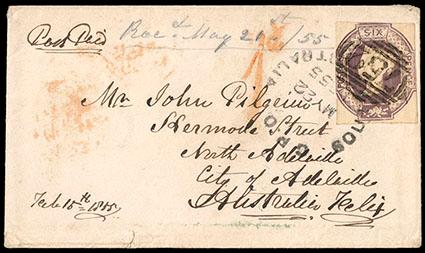 Post Paid
Recd May 21st /55
SIX
GPO
MY 22
55
Mr John Pilgrim
Hermode Street
North Adelaide
City of Adelaide
Australia Felix
Feb 15th 1855